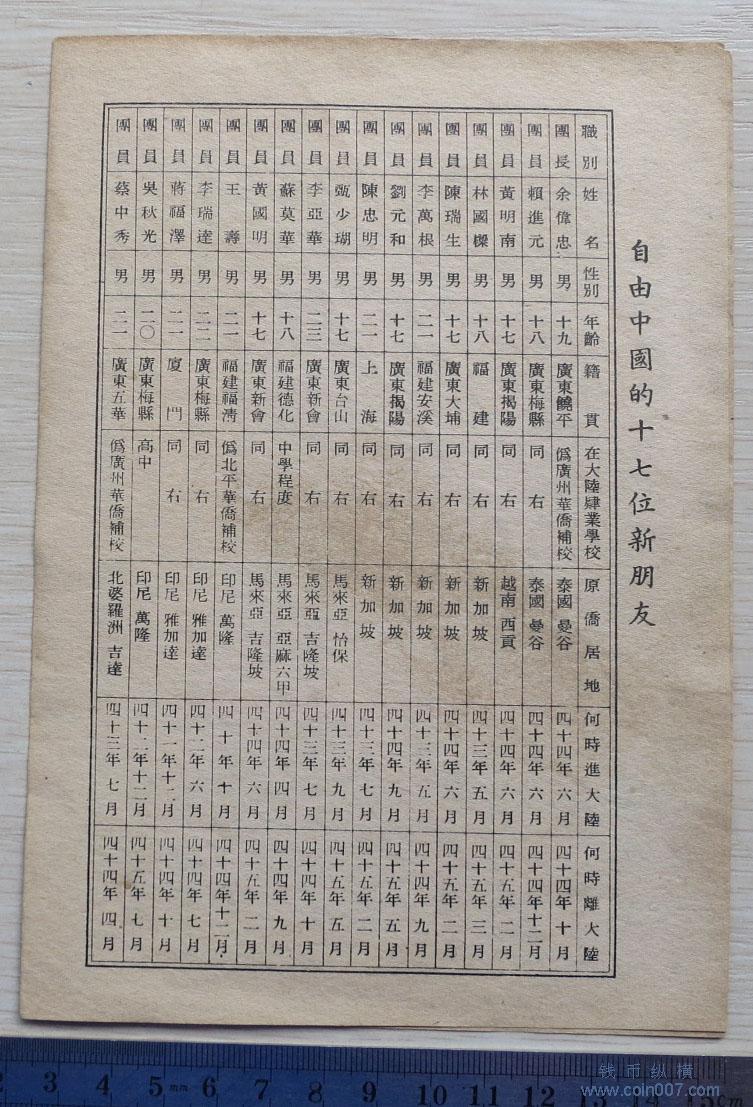 自由中國的十七位新朋友
職別 姓名 性別 年齡 籍貫 在大陸肄業學校 原僑居地 何時進大陸 何時離大陸
團長 余偉忠 男 十九 廣東饒平 僞廣州華僑補校 泰國 曼谷 四十四年六月 四十四年十月
團員 賴進元 男 十八 廣東梅縣 同右 泰國 曼谷 四十四年六月 四十四年十二月
團員 黃明南 男 十七 廣東揭陽 同右 越南 西貢 四十四年六月 四十五年二月
團員 林國樑 男 十八 福建 同右 新加坡 四十三年五月 四十五年三月
團員 陳瑞生 男 十七 廣東大埔 同右 新加坡 四十四年六月 四十五年二月
團員 李萬根 男 二一 福建安溪 同右 新加坡 四十三年五月 四十四年九月
團員 劉元和 男 十七 廣東揭陽 同右 新加坡 四十四年九月 四十五年五月
團員 陳忠明 男 二一 上海 同右 新加坡 四十三年七月 四十五年二月
團員 甄少瑚 男 十七 廣東台山 同右 馬來亞 怡保 四十三年九月 四十五年五月
團員 李亞華 男 二三 廣東新會 同右 馬來亞 吉隆坡 四十三年七月 四十四年十月
團員 蘇莫華 男 十八 福建德化 中學程度 馬來亞 亞麻六甲 四十四年四月 四十四年九月
團員 黃國明 男 十七 廣東新會 同右 馬來亞 吉隆坡 四十四年六月 四十五年二月
團員 王壽 男 二一 福建福淸 僞北平華僑補校 印尼 萬隆 四十年十月 四十四年十二月
團員 李瑞達 男 二二 廣東梅縣 同右 印尼 雅加達 四十二年六月 四十四年七月
團員 蔣福澤 男 二一 廈門 同右 印尼 雅加達 四十一年十二月 四十四年十月
團員 吳秋光 男 二〇 廣東梅縣 高中 印尼 萬隆 四十二年十二月 四十五年七月
團員 蔡中秀 男 二一 廣東五華 僞廣州華僑補校 北婆羅洲 吉達 四十三年七月 四十四年四月
2 3 4 5 mm 6 7 8 9 10 11 12
钱币纵横
www.coin007.com